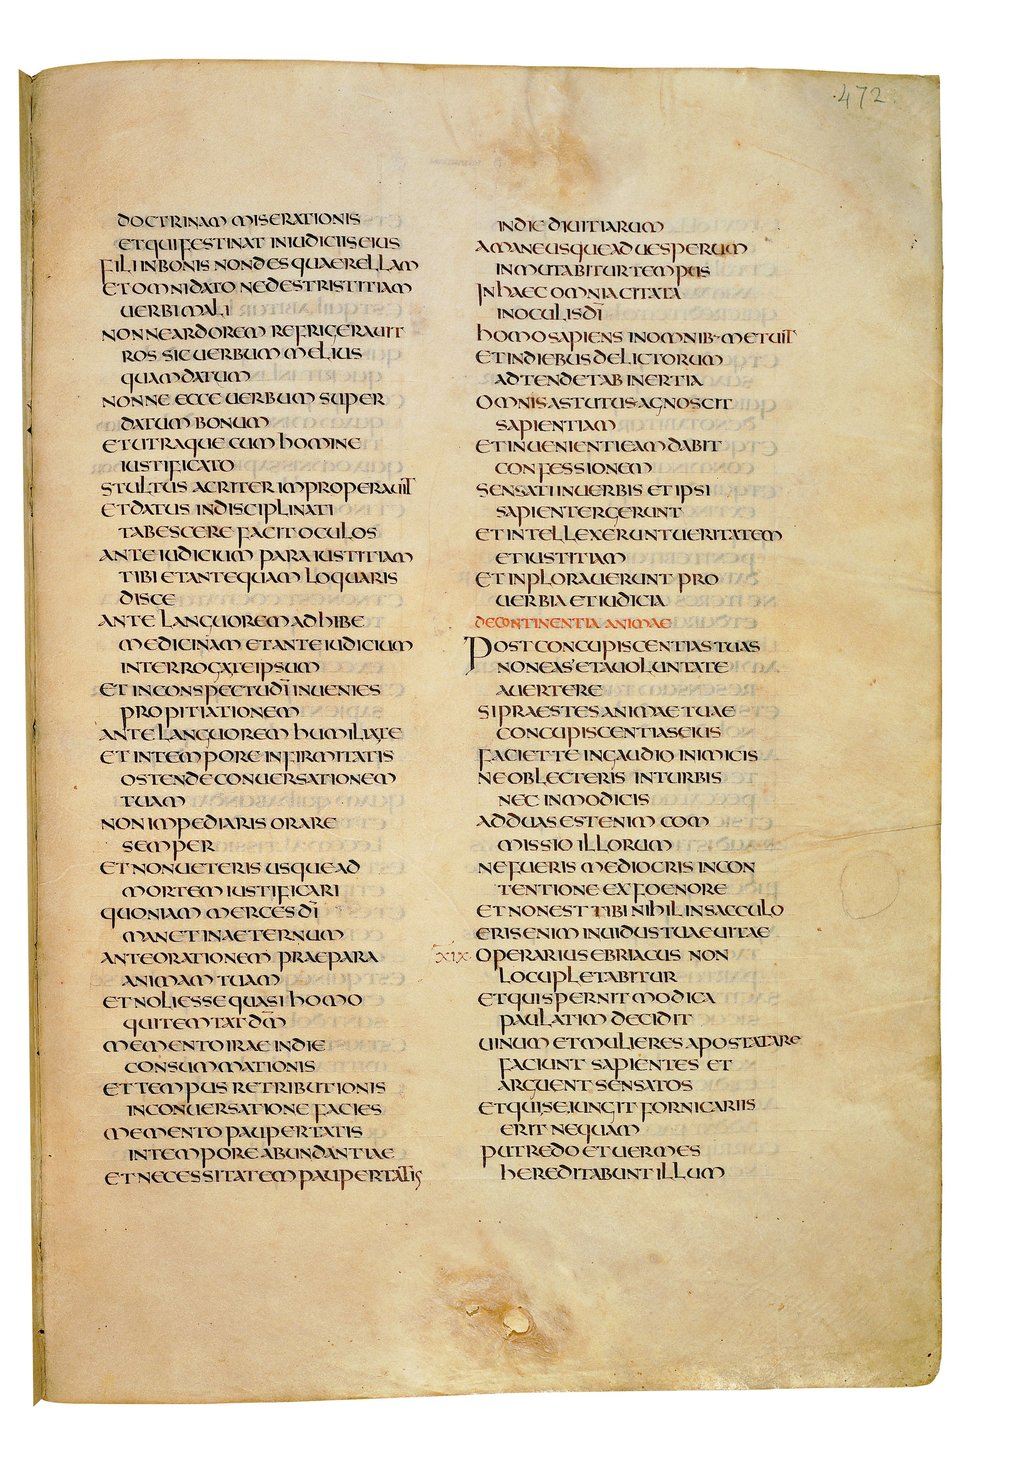 472
DOCTRINAM MISERATIONIS
ET QUI FESTINAT IN IUDICIIS EIUS
FILI IN BONIS NON DES QUAERELLAM
ET OMNI DATO NE DES TRISTITIAM
UERBI MALI
NONNE ARDOREM REFRIGERAUIT
ROS SIC UERBUM MELIUS
QUAM DATUM
NONNE ECCE UERBUM SUPER
DATUM BONUM
ET UTRAQUE CUM HOMINE
IUSTIFICATO
STULTUS ACRITER IMPROPERAUIT
ET DATUS INDISCIPLINATI
TABESCERE FACIT OCULOS
ANTE IUDICIUM PARA IUSTITIAM
TIBI ET ANTEQUAM LOQUARIS
DISCE
ANTE LANGUOREM ADHIBE
MEDICINAM ET ANTE IUDICIUM
INTERROGA TEIPSUM
ET IN CONSPECTU DĪ INUENIES
PROPITIATIONEM
ANTE LANGUOREM HUMILIA TE
ET IN TEMPORE INFIRMITATIS
OSTENDE CONUERSATIONEM
TUAM
NON IMPEDIARIS ORARE
SEMPER
ET NON UETERIS USQUE AD
MORTEM IUSTIFICARI
QUONIAM MERCES DĪ
MANET IN AETERNUM
ANTE ORATIONEM PRAEPARA
ANIMAM TUAM
ET NOLI ESSE QUASI HOMO
QUI TEMTAT DM̄
MEMENTO IRAE IN DIE
CONSUMMATIONIS
ET TEMPUS RETRIBUTIONIS
IN CONUERSATIONE FACIES
MEMENTO PAUPERTATIS
IN TEMPORE ABUNDANTIAE
ET NECESSITATEM PAUPERTATIS
IN DIE DIUITIARUM
A MANE USQUE AD UESPERUM
INMUTABITUR TEMPUS
IN HAEC OMNIA CITATA
IN OCULIS DĪ
HOMO SAPIENS IN OMNIB· METUIT
ET IN DIEBUS DELICTORUM
ADTENDET AB INERTIA
OMNIS ASTUTUS AGNOSCIT
SAPIENTIAM
ET INUENIENTI EAM DABIT
CONFESSIONEM
SENSATI IN UERBIS ET IPSI
SAPIENTER GERUNT
ET INTELLEXERUNT UERITATEM
ET IUSTITIAM
ET INPLORAUERUNT PRO
UERBIA ET IUDICIA
DE CONTINENTIA ANIMAE
POST CONCUPISCENTIAS TUAS
NON EAS ET A UOLUNTATE
AUERTERE
SI PRAESTES ANIMAE TUAE
CONCUPISCENTIAS EIUS
FACIET TE IN GAUDIO INIMICIS
NE OBLECTERIS IN TURBIS
NEC INMODICIS
ADDUAS EST ENIM COM
MISSIO ILLORUM
NE FUERIS MEDIOCRIS IN CON
TENTIONE EX FOENORE
ET NON EST TIBI NIHIL IN SACCULO
ERIS ENIM INUIDUS TUAE UITAE
XIX· OPERARIUS EBRIACUS NON
LOCUPLETABITUR
ET QUI SPERNIT MODICA
PAULATIM DECIDIT
UINUM ET MULIERES APOSTATARE
FACIUNT SAPIENTES ET
ARGUENT SENSATOS
ET QUI SE IUNGIT FORNICARIIS
ERIT NEQUAM
PUTREDO ET UERMES
HEREDITABUNT ILLUM